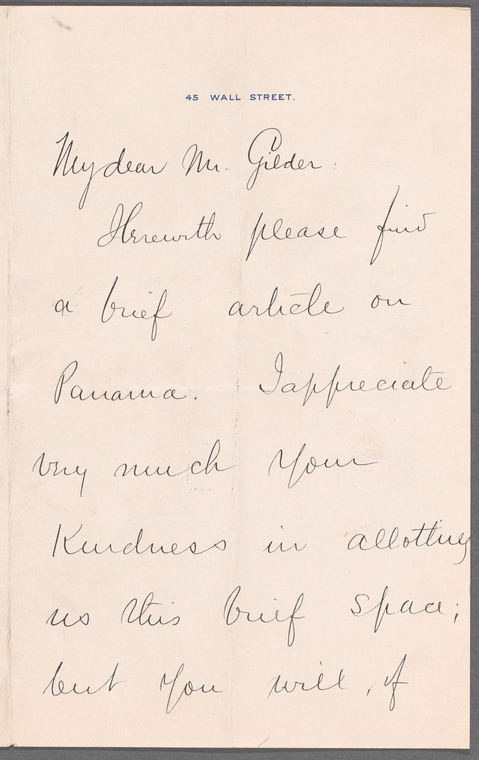 45 WALL STREET.
My dear Mr. Gilder:
Herewith please find
a brief article on
Panama. I appreciate
very much your
Kindness in allotting
us this brief space;
but you will, if